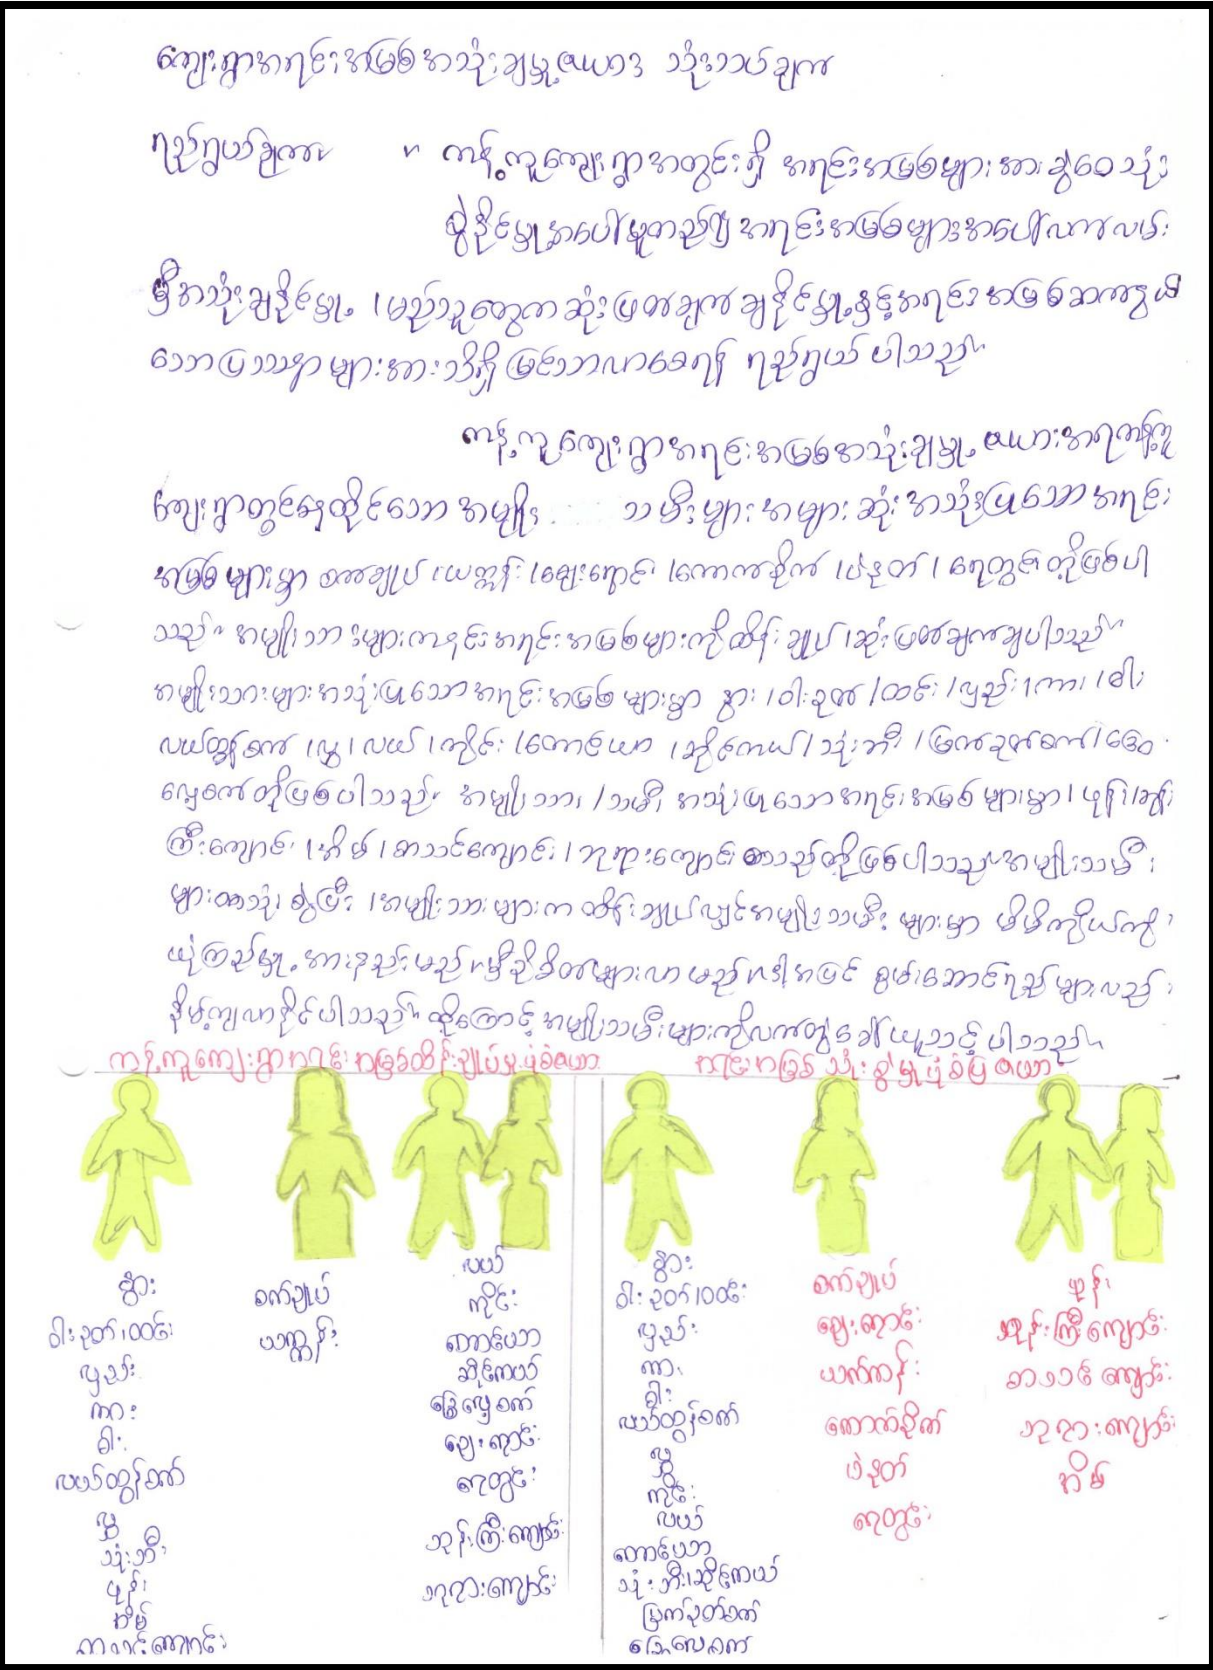 ကျေးရွာအရင်းအမြစ်အသုံးချမှု့ဇယား သုံးသပ်ချက်
ရည်ရွယ်ချက်။ ။ ကန့်ကူကျေးရွာအတွင်းရှိ အရင်းအမြစ်များအား ခွဲဝေသုံး
စွဲနိုင်မှု့အပေါ်မူတည်၍ အရင်းအမြစ်များအပေါ်လက်လှမ်း
မှီအသုံးချနိုင်မှု့၊ မည်သူတွေက ဆုံးဖြတ်ချက်ချနိုင်မှု့နှင့်အရင်းအမြစ်ဆက်နွယ်
သောပြဿနာများအားသိရှိမြင်သာလာစေရန် ရည်ရွယ်ပါသည်။
ကန့်ကူကျေးရွာအရင်းအမြစ်အသုံးချမှု့ ဇယားအရကန့်ကူ
ကျေးရွာတွင်နေထိုင်သော အမျိုး သမီးများ အများဆုံးအသုံးပြုသောအရင်း
အမြစ်များမှာ စက်ချုပ်၊ ယက္ကန်း၊ ဈေးရောင်း၊ ကောက်စိုက်၊ ပဲနုတ်၊ ရေတွင်းတို့ဖြစ်ပါ
သည်။ အမျိုးသားများက၎င်းအရင်းအမြစ်များကိုထိန်းချုပ်၊ ဆုံးဖြတ်ချက်ချပါသည်။
အမျိုးသားများအသုံးပြုသောအရင်းအမြစ်များမှာ နွား၊ ဝါးခုတ်၊ ထင်း၊ လှည်း၊ ကား၊ ဓါး
လယ်ထွန်စက်၊ လွှ၊ လယ်၊ ကိုင်း၊ တောင်ယာ၊ ဆိုင်ကယ်၊ သုံးဘီး၊ မြက်ခုတ်စက်၊ ခြွေ
လှေ့စက်တို့ဖြစ်ပါသည်။ အမျိုးသား၊ သမီး အသုံးပြုသောအရင်းအမြစ်များမှာ၊ ဖုန်း၊ ဘုန်း
ကြီးကျောင်း၊ အိမ်၊ စာသင်ကျောင်း၊ ဘုရားကျောင်း စသည်တို့ဖြစ်ပါသည်။ အမျိုးသမီး
များကသုံးစွဲပြီး၊ အမျိုးသားများက ထိန်းချုပ်လျှင်အမျိုးသမီးများမှာ မိမိကိုယ်ကို
ယုံကြည်မှု့အားနည်းမည်။ မှီခိုစိတ်များလာမည်။ ဒါ့အပြင် စွမ်းဆောင်ရည်များလည်း
နိမ့်ကျလာနိုင်ပါသည်။ ထို့ကြောင့် အမျိုးသမီးများကိုလက်တွဲခေါ်ယူသင့်ပါသည်။
ကန့်ကူကျေးရွာအရင်းအမြစ်ထိန်းချုပ်မှုပုံစံဇယား
အရင်းအမြစ်သုံးစွဲမှု့ပုံစံပြဇယား
နွား
ဝါးခုတ်၊ ထင်း
လှည်း
ကား
ဓါး
လယ်ထွန်စက်
လွှ
သုံးဘီး
ဖုန်း
အိမ်
စာသင်ကျောင်း
စက်ချုပ်
ယက္ကန်း
လယ်
ကိုင်း
တောင်ယာ
ဆိုင်ကယ်
ခြွေလှေ့စက်
ဈေးရောင်း
ရေတွင်း
ဘုန်းကြီးကျောင်း
ဘုရားကျောင်း
နွား
ဝါးခုတ်၊ ထင်း
လှည်း
ကား
ဓါး
လယ်ထွန်စက်
လွှ
ကိုင်း
လယ်
တောင်ယာ
သုံးဘီး၊ ဆိုင်ကယ်
မြက်ခုတ်စက်
ခြွေလှေ့စက်
စက်ချုပ်
ဈေးရောင်း
ယက်ကန်း
ကောက်စိုက်
ပဲနုတ်
ရေတွင်း
ဖုန်း
ဘုန်းကြီးကျောင်း
စာသင်ကျောင်း
ဘုရားကျောင်း
အိမ်